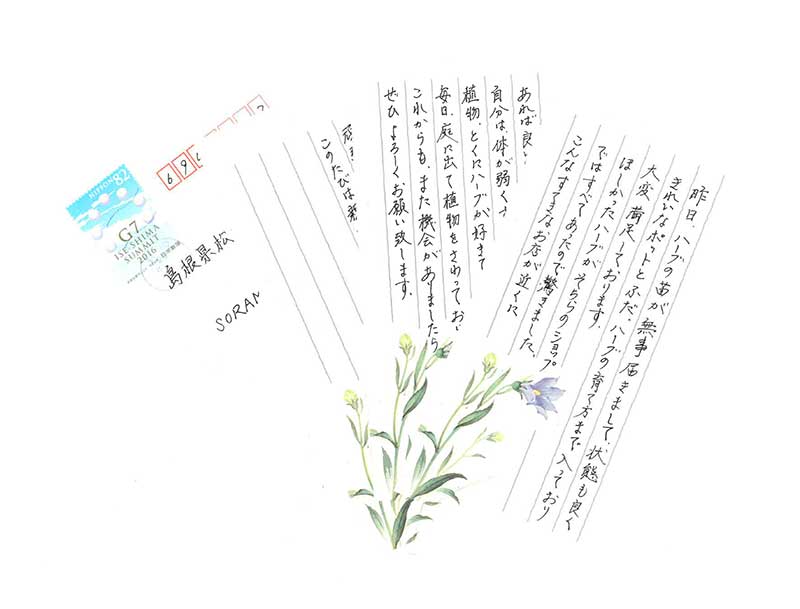 昨日、ハーブの苗が無事届きまして、状態も良く
きれいなポットとふだ、ハーブの育て方まで入っており
大変満足しております。
ほしかったハーブがそちらのショップ
ではすべてあったので驚きました。
こんなすてきなお店が近くに
あれば良い
自分は、体が弱く
植物、とくにハーブが好きで
毎日、庭に出て植物をさわってお
これからも、また機会がありましたら
ぜひよろしくお願い致します。
このたびは
69
NIPPON 82
G7
ISE-SHIMA
SUMMIT
2016
島根県松
SORA